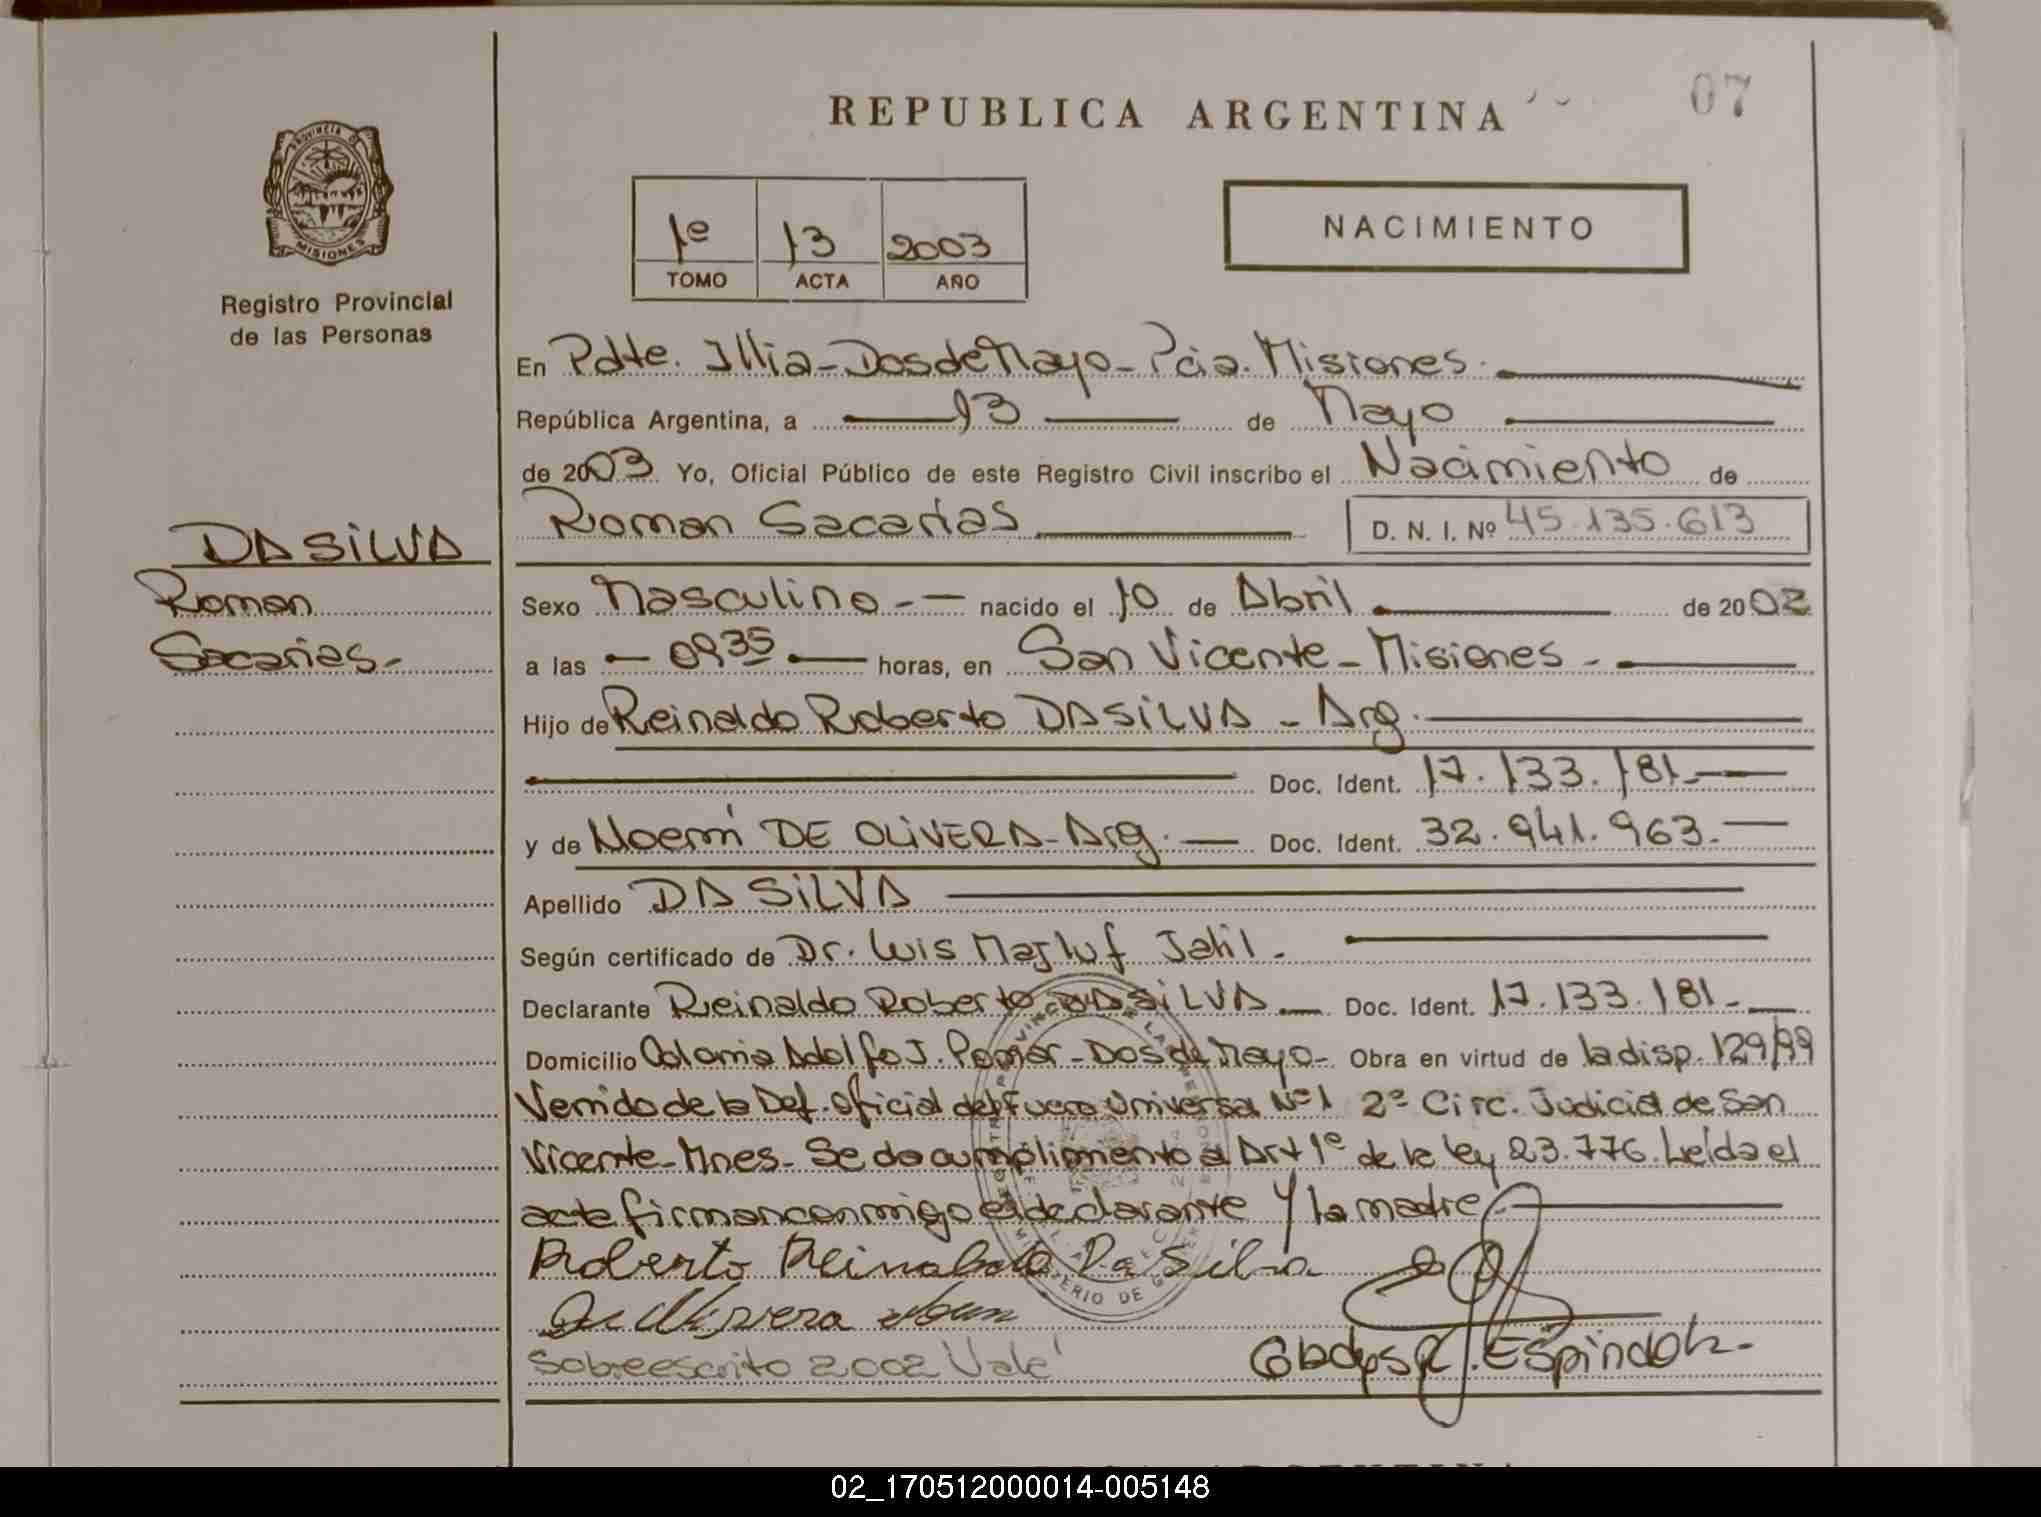 REPUBLICA ARGENTINA
07
PROVINCIA DE
MISIONES
Registro Provincial
de las Personas
1º 13 2003
TOMO ACTA AÑO
NACIMIENTO
En Pdte. Illia - Dos de Mayo - Pcia. Misiones.
República Argentina, a 13 de Mayo
de 2003 Yo, Oficial Público de este Registro Civil inscribo el Nacimiento de
Roman Sacarias D. N. I. Nº 45.135.613
DA SILVA
Roman
Sacarias.-
Sexo Masculino -- nacido el 10 de Abril de 2002
a las - 0935 - horas, en San Vicente - Misiones -.
Hijo de Reinaldo Roberto DA SILVA - Arg.
Doc. Ident. 17.133.181.-
y de Noemí DE OLIVERA - Arg. - Doc. Ident. 32.941.963.-
Apellido DA SILVA
Según certificado de Dr. Luis Majluf Jalil.
Declarante Reinaldo Roberto DA SILVA - Doc. Ident. 17.133.181.-
Domicilio Colonia Adolfo J. Pomar - Dos de Mayo - Obra en virtud de la disp. 129/99
Venido de la Def. oficial del Fuero Universal Nº 1 2º Circ. Judicial de San
Vicente - Mnes - Se da cumplimiento al Art 1º de la ley 23.776. Leída el
acta firman conmigo el declarante Y la madre.
Roberto Reinaldo Da Silva
De Olivera
Sobreescrito 2002 Vale
Gladys R. Espindola.-
02_170512000014-005148